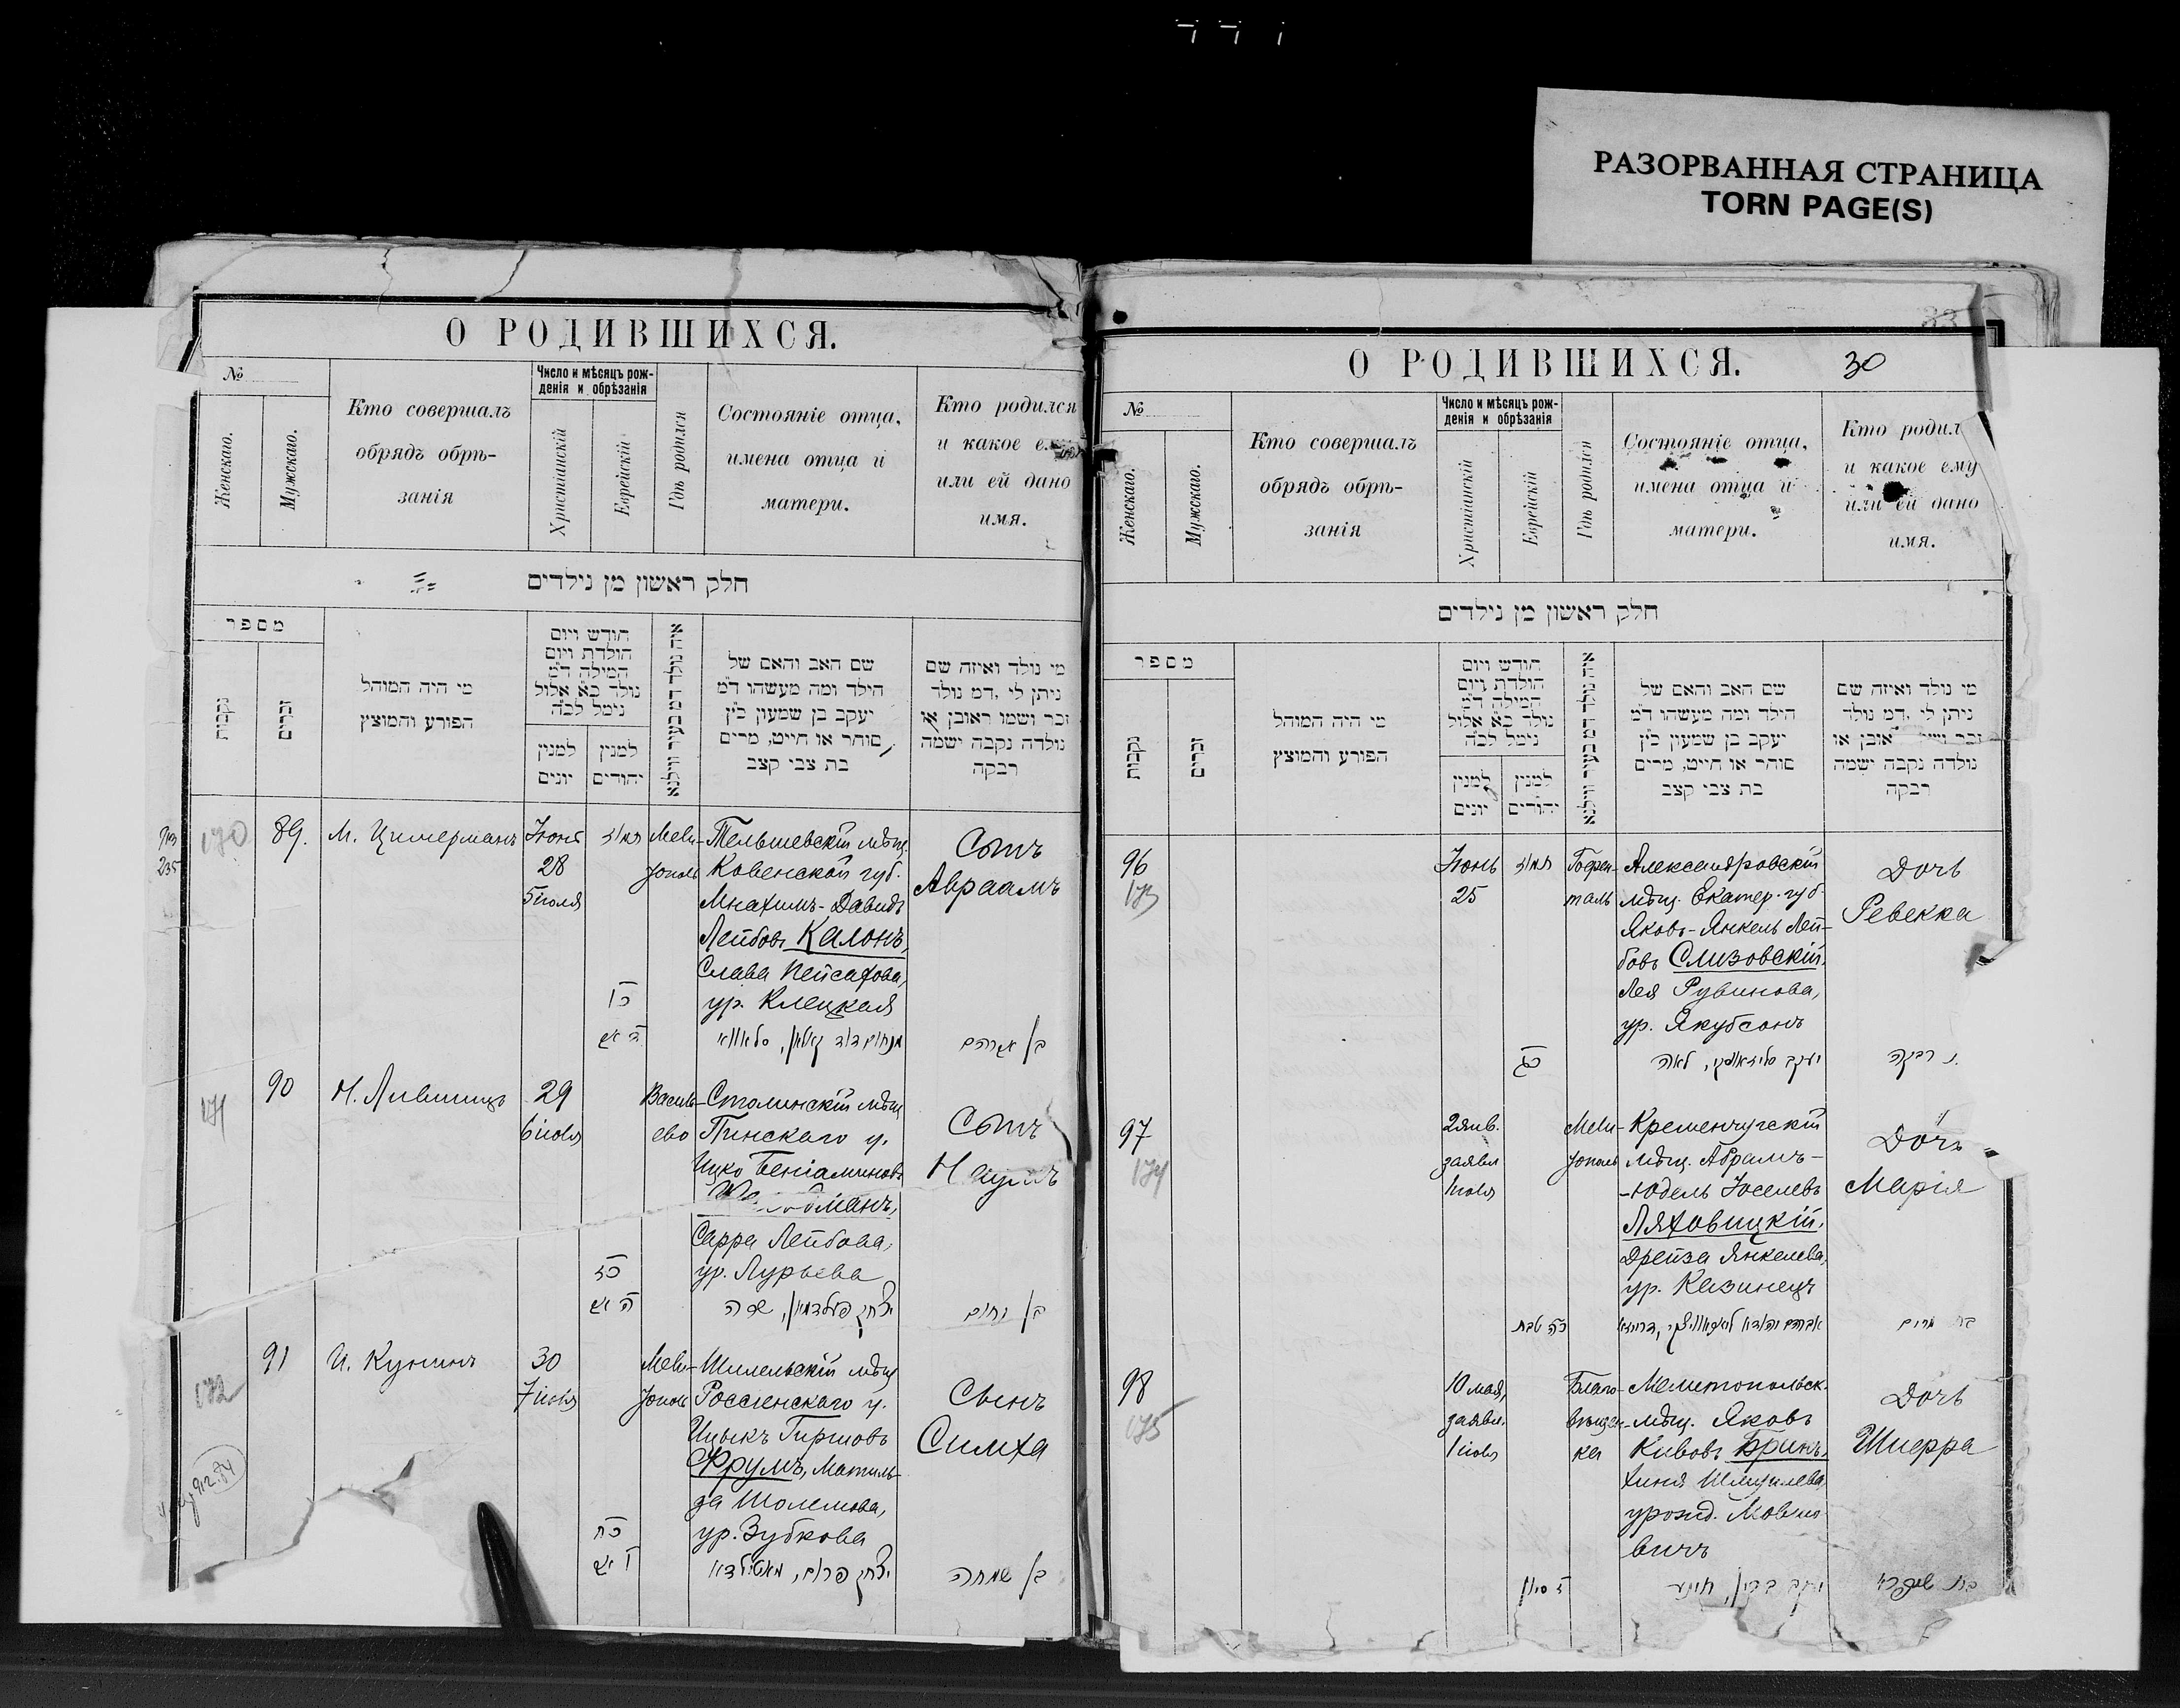 РАЗОРВАННАЯ СТРАНИЦА
TORN PAGE(S)
О РОДИВШИХСЯ.
№
Женскаго.
Мужскаго.
Кто совершалъ
обрядъ обрѣ-
занія
Число и мѣсяцъ рож-
денія и обрѣзанія
Христіанскій
Еврейскій
Гдѣ родился
Состояніе отца,
имена отца и
матери.
Кто родился
и какое
или ей дано
имя.
חלק ראשון מן נילדים
מספר
נקבות
זכרים
מי היה המוהל
הפורע והמוצץ
חודש ויום
הולדת ויום
המילה ד״מ
נולד כ״א אלול
נימל לכ״ה
למנין
יונים
למנין
יהודים
איה נולד דמ בעיר ווילנא
שם האב והאם של
הילד ומה מעשהו ד״מ
יעקב בן שמעון כ״ץ
סוחר או חייט, מרים
בת צבי קצב
מי נולד ואיזה שם
ניתן לי, דמ נולד
זכר ושמו ראובן או
נולדה נקבה ישמה
רבקה
170
89.
М. Цимерманъ
Іюня
28
5 іюля
תמוז
כו
ה אש
Мели-
тополь
Тельшевскій мѣщ.
Ковенской губ.
Мнахимъ-Давидъ
Лейбовъ Калонъ,
Слава Пейсахова,
ур. Клецкая
Сынъ
Авраамъ
בן אברהם
171
90
Н. Лившицъ
29
6 іюля
כז
Василь-
ево
Столинскій мѣщ.
Пинскаго у.
Ицко Беніаминовъ
Сарра Лейбова,
ур. Лурьева
Сынъ
Наумъ
בן נחום
172
91
И. Кунинъ
30
7 іюля
כח
Мели-
тополь
Шилельскій мѣщ.
Россіенскаго у.
Ицыкъ Гиршовъ
Фрумъ, Матиль-
да Шолемова,
ур. Зубкова
יצחק פרום, מאטילדא
Сынъ
Симха
בן שמחה
О РОДИВШИХСЯ.
30
№
Женскаго.
Мужскаго.
Кто совершалъ
обрядъ обрѣ-
занія
Число и мѣсяцъ рож-
денія и обрѣзанія
Христіанскій
Еврейскій
Гдѣ родился
Состояніе отца,
имена отца и
матери.
Кто родил
и какое ему
или ей дано
имя.
חלק ראשון מן נילדים
מספר
נקבות
זכרים
מי היה המוהל
הפורע והמוצץ
חודש ויום
הולדת ויום
המילה ד״מ
נולד כ״א אלול
נימל לכ״ה
למנין
יונים
למנין
יהודים
איה נולד דמ בעיר ווילנא
שם האב והאם של
הילד ומה מעשהו ד״מ
יעקב בן שמעון כ״ץ
סוחר או חייט, מרים
בת צבי קצב
מי נולד ואיזה שם
ניתן לי, דמ נולד
זכר אובן או
נולדה נקבה ישמה
רבקה
96
173
Іюнь
25
תמוז
כג
Гофен-
таль
Александровскій
мѣщ. Екатер. губ
Яковъ-Янкель Лей-
бовъ Слизовскій,
Лея Рувинова,
ур. Якубсонъ
Дочь
Ревекка
רבקה
97
174
2 янв.
заявл
1 іюля
כה טבת
Мели-
тополь
Кременчугскій
мѣщ. Абрамъ-
-Юдель Іоселевъ
Ляховицкій,
Дрейза Янкелева,
ур. Казинецъ
Дочь
Марія
בת מרים
98
175
10 мая,
заявл.
1 іюля
ז סיון
Благо-
вѣщен-
ка
Мелитопольск.
мѣщ. Яковъ
Кивовъ Бринъ,
Хиня Шмуилева
урожд. Мовшо
вичъ
יעקב ברין, חינע
Дочь
Шифра
בת שיפרה